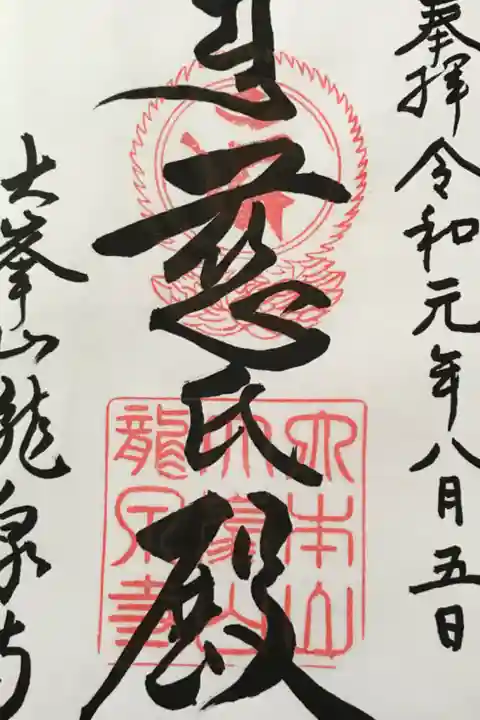 奉拝令和元年八月五日
慈氏殿
大峯山龍泉寺
大本山
大峯山
龍泉寺